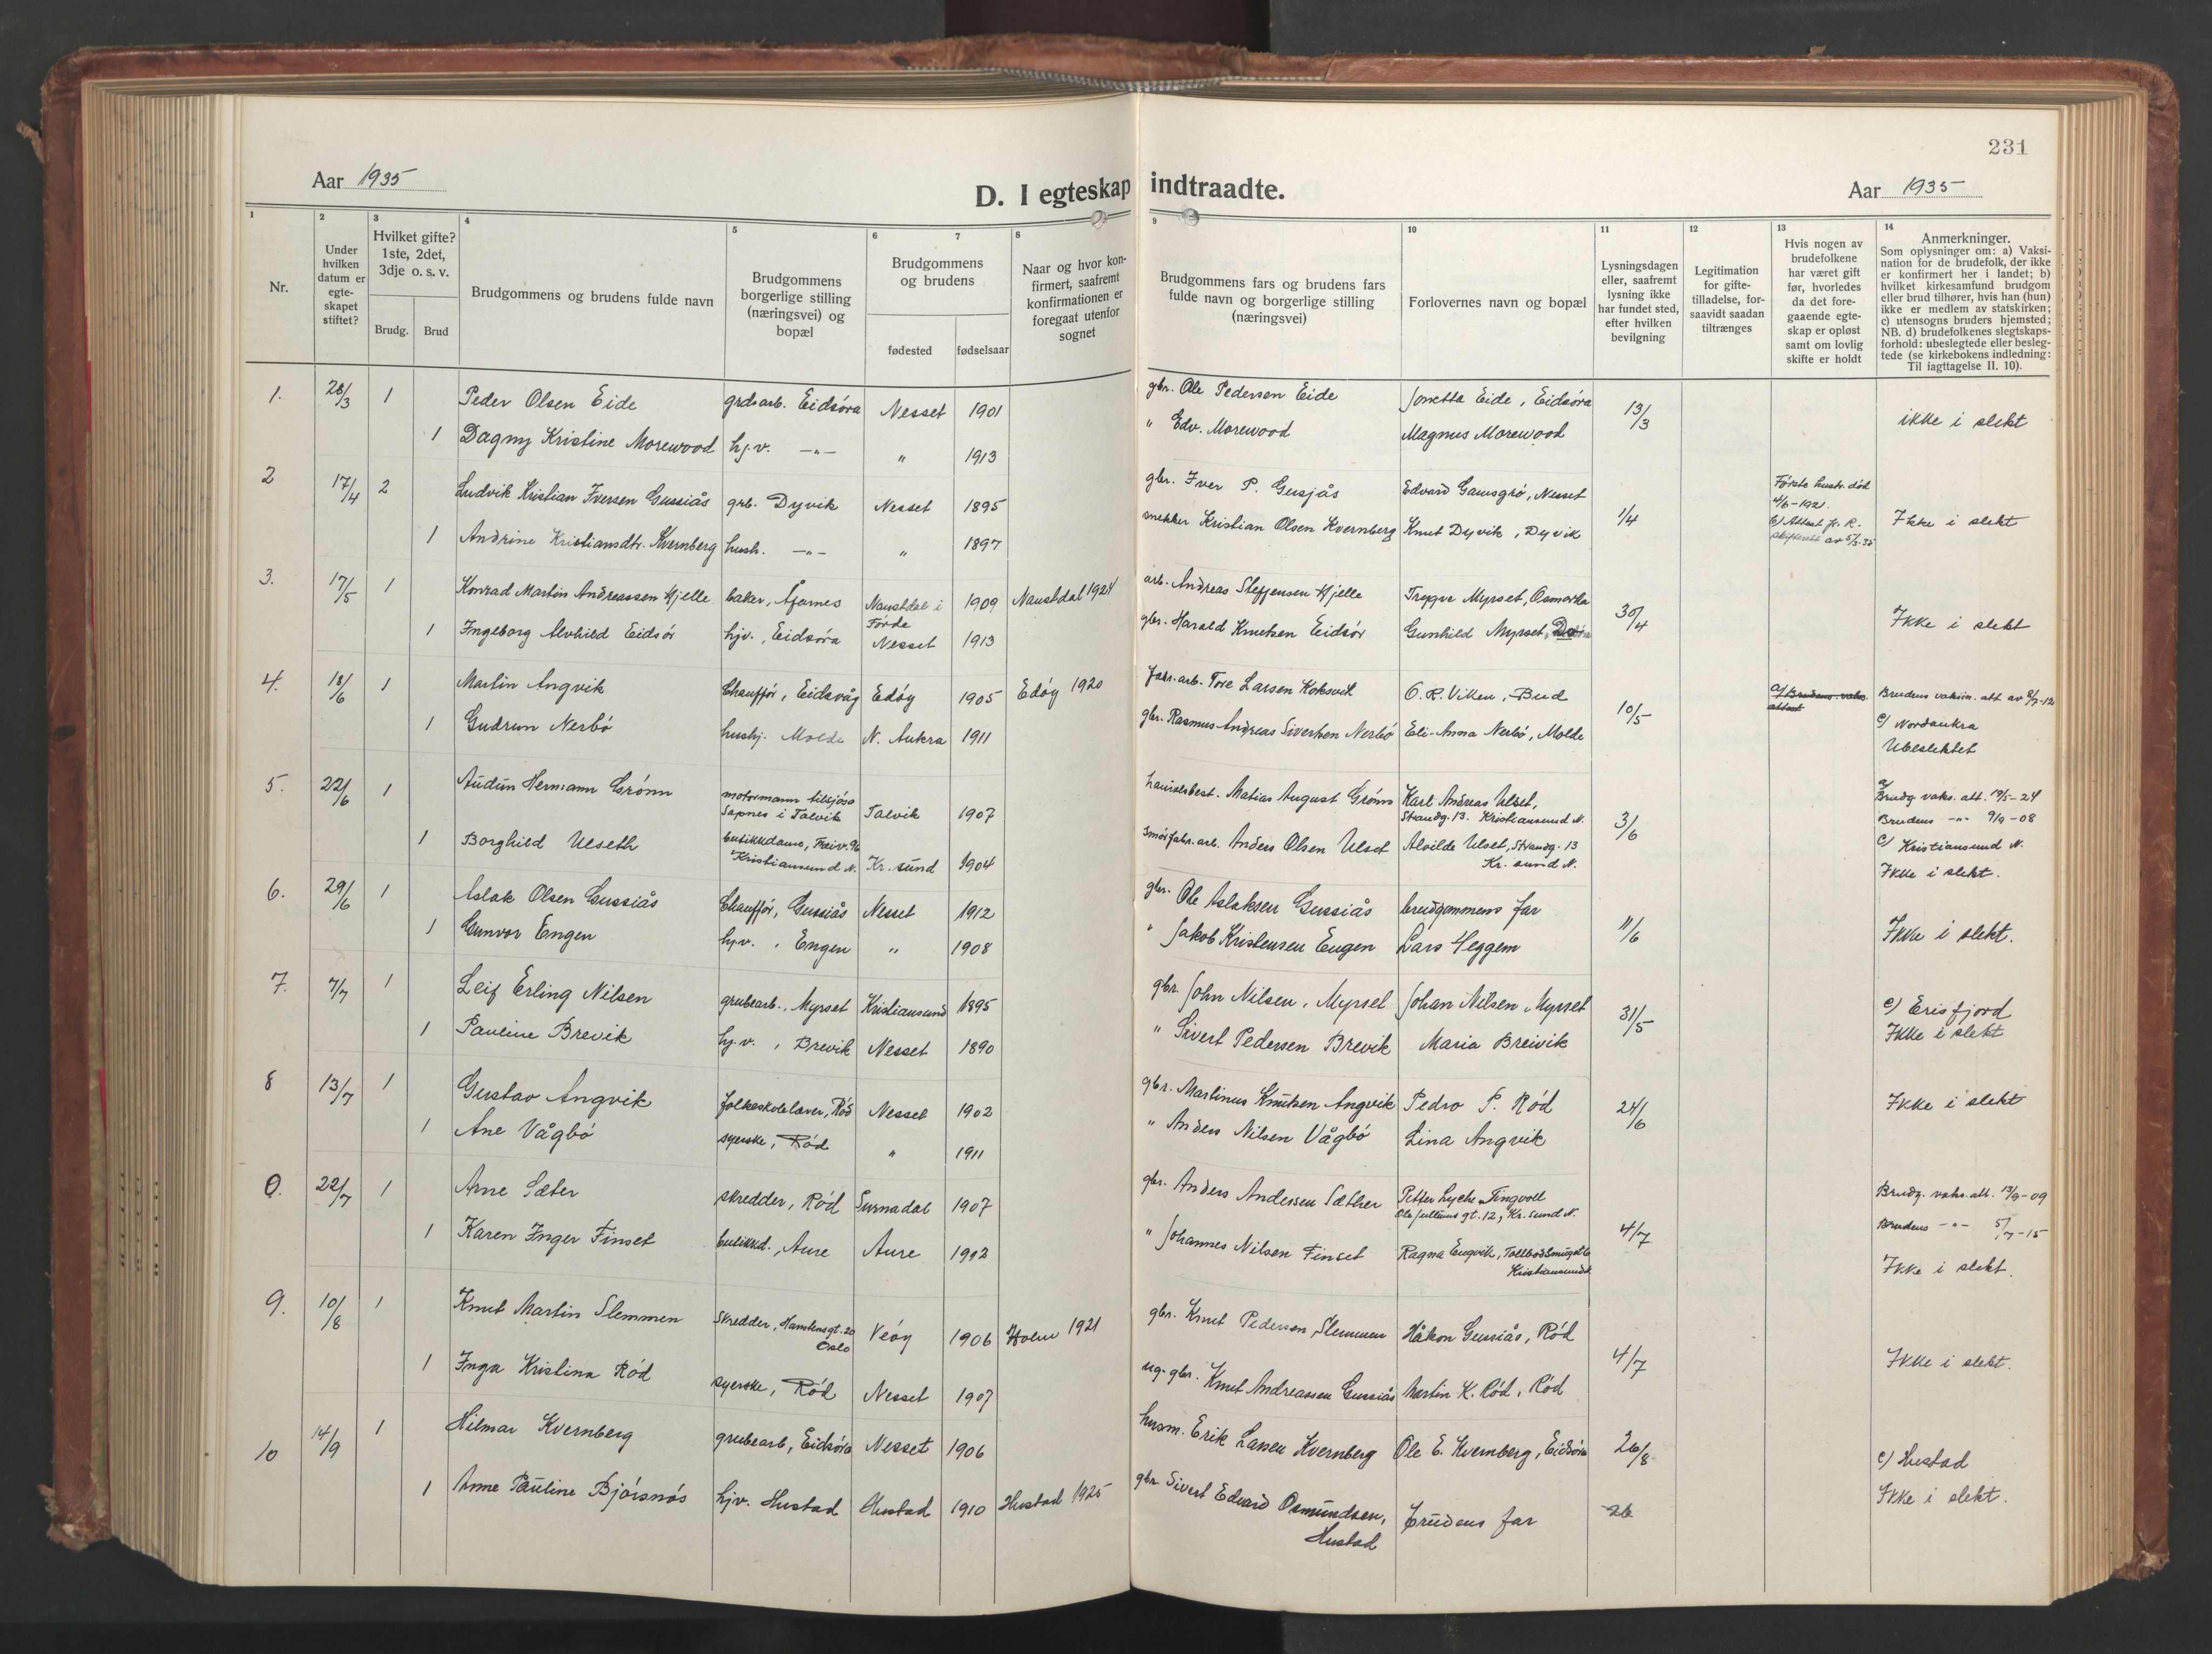 231
Aar 1935
D. I egteskap indtraadte.
Aar 1935
1 2 3 4 5 6 7 8 9 10 11 12 13 14
Nr.
Under hvilken datum er egte-skapet stiftet?
Hvilket gifte? 1ste, 2det, 3dje o. s. v.
Brudg. Brud
Brudgommens og brudens fulde navn
Brudgommens borgerlige stilling (næringsvei) og bopæl
Brudgommens og brudens
fødested fødselsaar
Naar og hvor kon-firmert, saafremt konfirmationen er foregaat utenfor sognet
Brudgommens fars og brudens fars fulde navn og borgerlige stilling (næringsvei)
Forlovernes navn og bopæl
Lysningsdagen eller, saafremt lysning ikke har fundet sted, efter hvilken bevilgning
Legitimation for gifte-tilladelse, for-saavidt saadan tiltrænges
Hvis nogen av brudefolkene har været gift før, hvorledes da det fore-gaaende egte-skap er opløst samt om lovlig skifte er holdt
Anmerkninger.
Som oplysninger om: a) Vaksi-nation for de brudefolk, der ikke er konfirmert her i landet; b) hvilket kirkesamfund brudgom eller brud tilhører, hvis han (hun) ikke er medlem av statskirken; c) utensogns bruders hjemsted; NB. d) brudefolkenes slegtskaps-forhold: ubeslegtede eller besleg-tede (se kirkebokens indledning: Til iagttagelse II. 10).
1. 28/3 1 Peder Olsen Eide grdsarb. Eidsöra Nesset 1901 gbr. Ole Pedersen Eide Jonetta Eide, Eidsöra 13/3 ikke i slekt
1 Dagny Kristine Morewood hj.v. -"- " 1913 " Edv. Morewood Magnus Morewood
2 17/4 2 Ludvik Kristian Iversen Gussiås grb. Dyvik Nesset 1895 gbr. Iver P. Gusjås Edvard Gausgrö, Nesset 1/4 Første hustr. död 4/6-1921. b) Attest fr. R. skifterett av 5/3.35 Ikke i slekt
1 Andrine Kristiansdtr. Kvernberg hush. -"- " 1897 snekker Kristian Olsen Kvernberg Knut Dyvik, Dyvik
3. 17/5 1 Konrad Martin Andreassen Hjelle baker, Åfarnes Naustdal i Förde 1909 Naustdal 1924 arb. Andreas Steffensen Hjelle Trygve Myrset, Osmarka 30/4 Ikke i slekt
1 Ingeborg Alvhild Eidsör hjv., Eidsöra Nesset 1913 gbr. Harald Knutsen Eidsör Gunhild Myrset,
4. 18/6 1 Martin Angvik Chaufför, Eidsvåg Edöy 1905 Edöy 1920 fabr.arb. Tore Larsen Koksvik O. R. Viken, Bud 10/5 a) Brudens vaks. attest Brudens vaksin. att av 2/7-12
1 Gudrun Nerbö hushj. Molde N. Aukra 1911 gbr. Rasmus Andreas Sivertsen Nerbö Eli-Anna Nerbö, Molde c) Nordaukra
Ubeslektet
5. 22/6 1 Audun Hermann Grönn motormann tilsjöss Sapnes i Talvik Talvik 1907 handelsbest. Matias August Grönn Karl Andreas Ulset, Strandg. 13. Kristiansund N. 3/6 a) Brudg. vaks. att. 19/5-24
1 Borghild Ulseth butikkdame, Freiv. 96 Kristiansund N. Kr. sund 1904 smörfabr.arb. Anders Olsen Ulset Alvilde Ulset, Strandg. 13 Kr. sund N. Brudens -"- 9/9-08
c) Kristiansund N.
Ikke i slekt.
6. 29/6 1 Aslak Olsen Gussiås Chaufför, Gussiås Nesset 1912 gbr. Ole Aslaksen Gussiås brudgommens far 11/6 Ikke i slekt.
1 Gunvor Engen hj.v., Engen " 1908 " Jakob Kristensen Engen Lars Heggem
7. 7/7 1 Leif Erling Nilsen grubearb., Myrset Kristiansund 1895 gbr. John Nilsen, Myrset Johan Nilsen, Myrset 31/5 c) Erisfjord
1 Pauline Brevik hj.v., Brevik Nesset 1890 " Sivert Pedersen Brevik Maria Breivik Ikke i slekt
8 13/7 1 Gustav Angvik folkeskolelærer, Röd Nesset 1902 gbr. Martinus Knutsen Angvik Pedro P. Röd 24/6 Ikke i slekt
1 Ane Vågbö syerske, Röd " 1911 " Anders Nilsen Vågbö Lina Angvik
0. 22/7 1 Arne Sæter skredder, Röd Surnadal 1907 gbr. Anders Andersen Sæther Petter Lyche, Tingvoll gt. 12, Kr. sund N. 4/7 Brudg. vaks. att. 13/9-09
1 Karen Inger Finset butikkd., Aure Aure 1912 " Johannes Nilsen Finset Ragna Engvik, Kristiansund Brudens -"- 5/7-15
Ikke i slekt.
9. 10/8 1 Knut Martin Slemmen Skredder, Oslo Veöy 1906 Holm 1921 gbr. Knut Pedersen Slemmen Håkon Gussiås, Röd 4/7 Ikke i slekt.
1 Inga Kristina Röd syerske, Röd Nesset 1907 ug. gbr. Knut Andreassen Gussiås Martin K. Röd, Röd
10 14/9 1 Hilmar Kvernberg grubearb, Eidsöra Nesset 1906 husm. Erik Larsen Kvernberg Ole E. Kvernberg, Eidsöra 26/8 c) Hustad
1 Anne Pauline Björsnös hjv. Hustad Hustad 1910 Hustad 1925 gbr. Sivert Edvard Osmundsen, Hustad brudens far 26 Ikke i slekt.